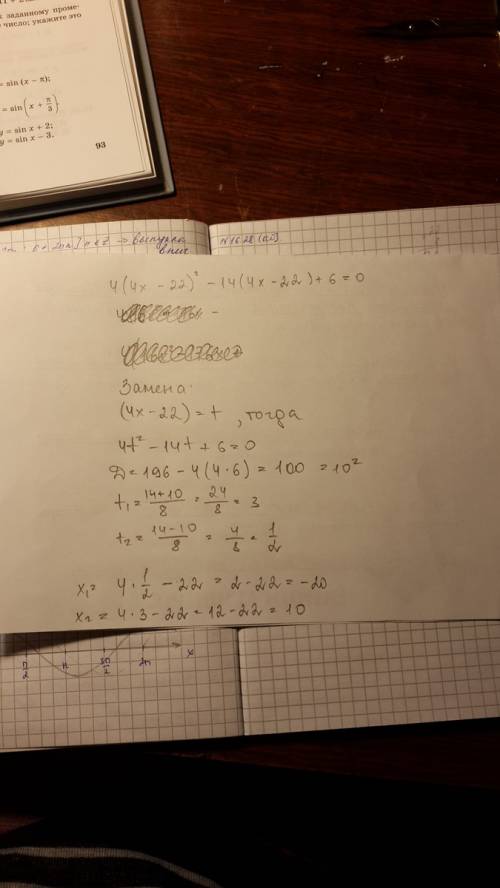 к заданному проме-
число; укажите это
= sin (x − π);
= sin(x + π/3)
y = sin x + 2;
y = sin x − 3.
93
4(4x - 22)² - 14(4x - 22) + 6 = 0
Замена:
(4x - 22) = t, тогда
4t² - 14t + 6 = 0
D = 196 - 4(4·6) = 100 = 10²
t₁ = (14+10)/8 = 24/8 = 3
t₂ = (14-10)/8 = 4/8 = 1/2
x₁ = 4·1/2 - 22 = 2 - 22 = -20
x₂ = 4·3 - 22 = 12 - 22 = 10
π/2 π 3π/2 2π x